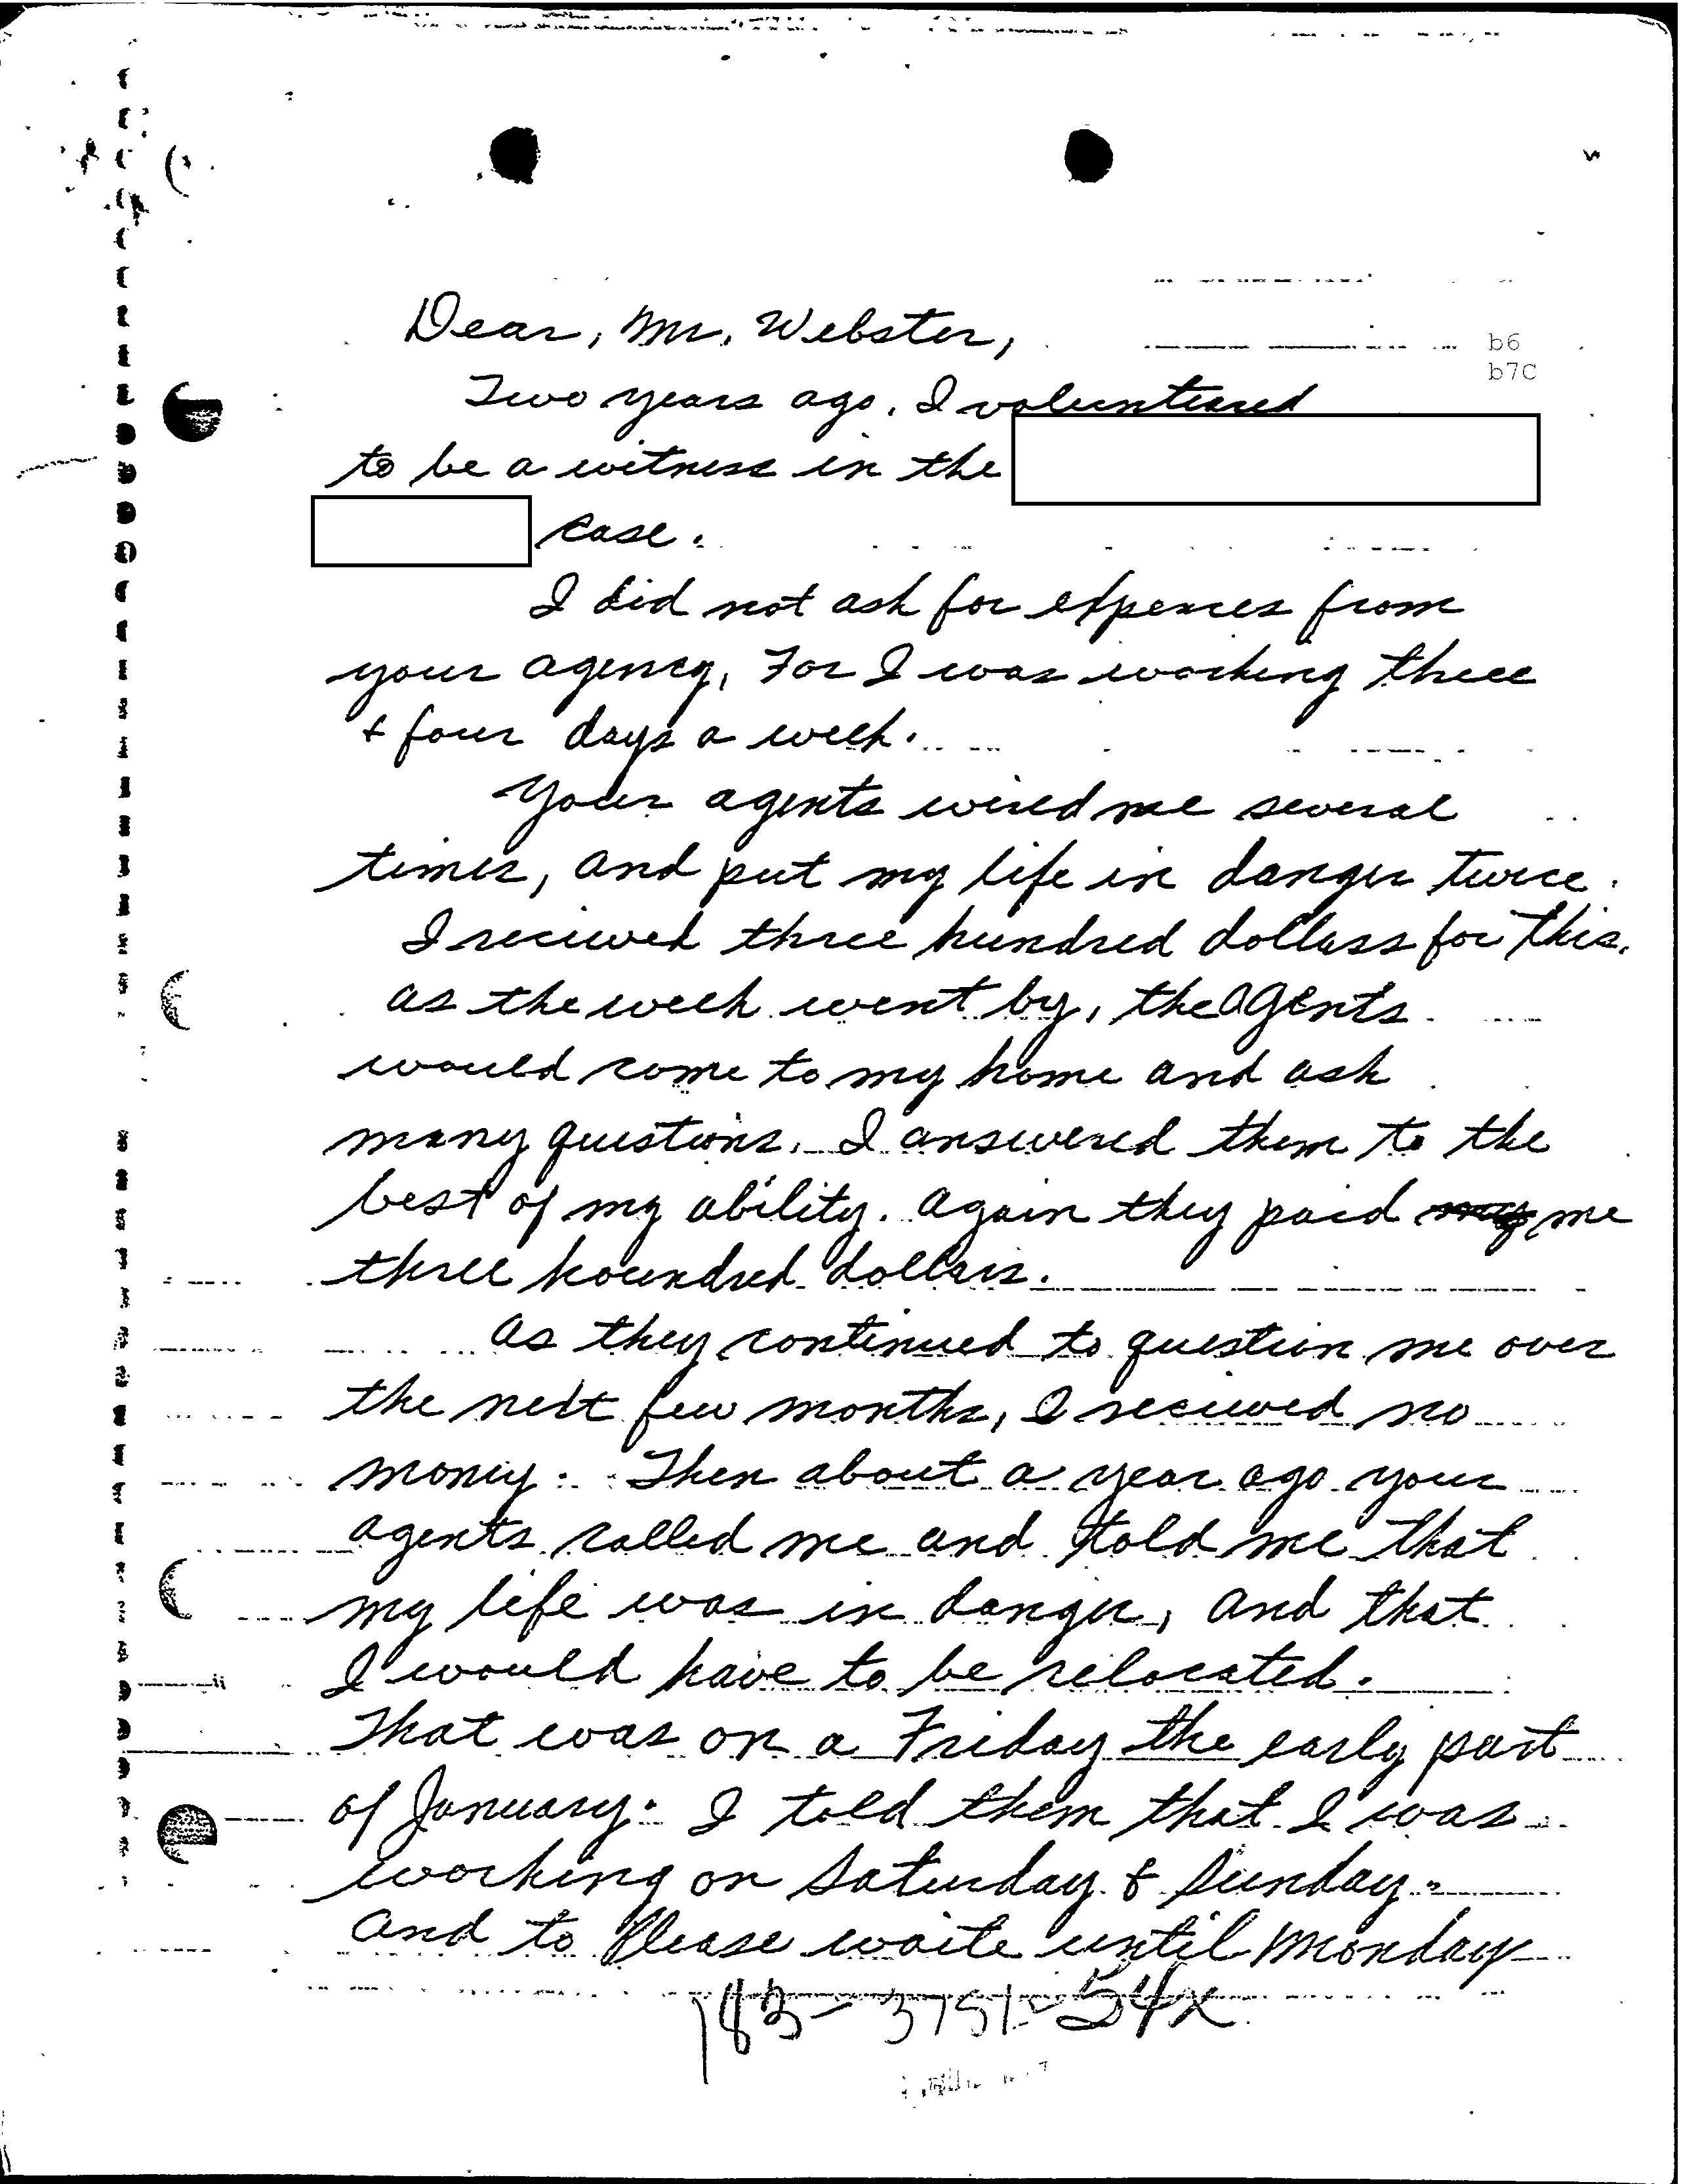 Dear, Mr. Webster,
b6
b7C
Two years ago, I volunteered
to be a witness in the
case.
I did not ask for expences from
your agency, For I was working three
& four days a week.
Your agents wired me several
times, and put my life in danger twice.
I recieved three hundred dollars for this.
as the week went by, the agents
would come to my home and ask
many questions. I answered them to the
best of my ability. again they paid me
three houndred dollars.
as they continued to question me over
the next few months, I recieved no
money. Then about a year ago your
agents called me and told me that
my life was in danger, and that
I would have to be relocated.
That was on a Friday the early part
of January. I told them that I was
working on Saturday & Sunday.
and to Please waite until Monday
183-3751-54x